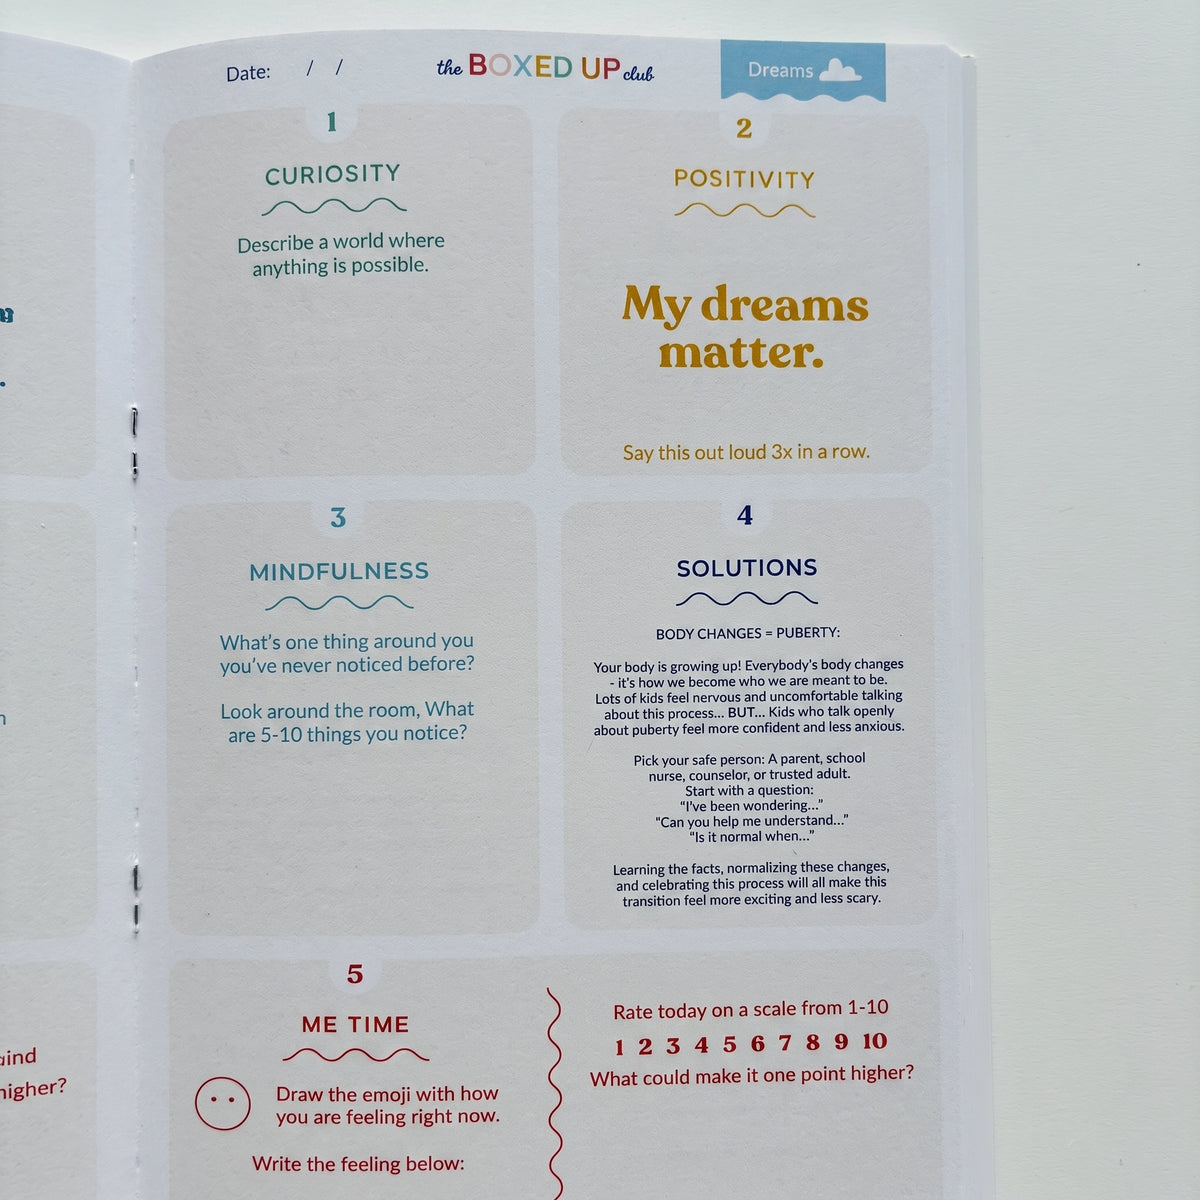 Date: / /
the BOXED UP club
Dreams
1
CURIOSITY
Describe a world where
anything is possible.
2
POSITIVITY
My dreams
matter.
Say this out loud 3x in a row.
3
MINDFULNESS
What's one thing around you
you've never noticed before?
Look around the room, What
are 5-10 things you notice?
4
SOLUTIONS
BODY CHANGES = PUBERTY:
Your body is growing up! Everybody's body changes
- it's how we become who we are meant to be.
Lots of kids feel nervous and uncomfortable talking
about this process... BUT... Kids who talk openly
about puberty feel more confident and less anxious.
Pick your safe person: A parent, school
nurse, counselor, or trusted adult.
Start with a question:
"I've been wondering..."
"Can you help me understand..."
"Is it normal when..."
Learning the facts, normalizing these changes,
and celebrating this process will all make this
transition feel more exciting and less scary.
5
ME TIME
Draw the emoji with how
you are feeling right now.
Write the feeling below:
Rate today on a scale from 1-10
1 2 3 4 5 6 7 8 9 10
What could make it one point higher?
higher?